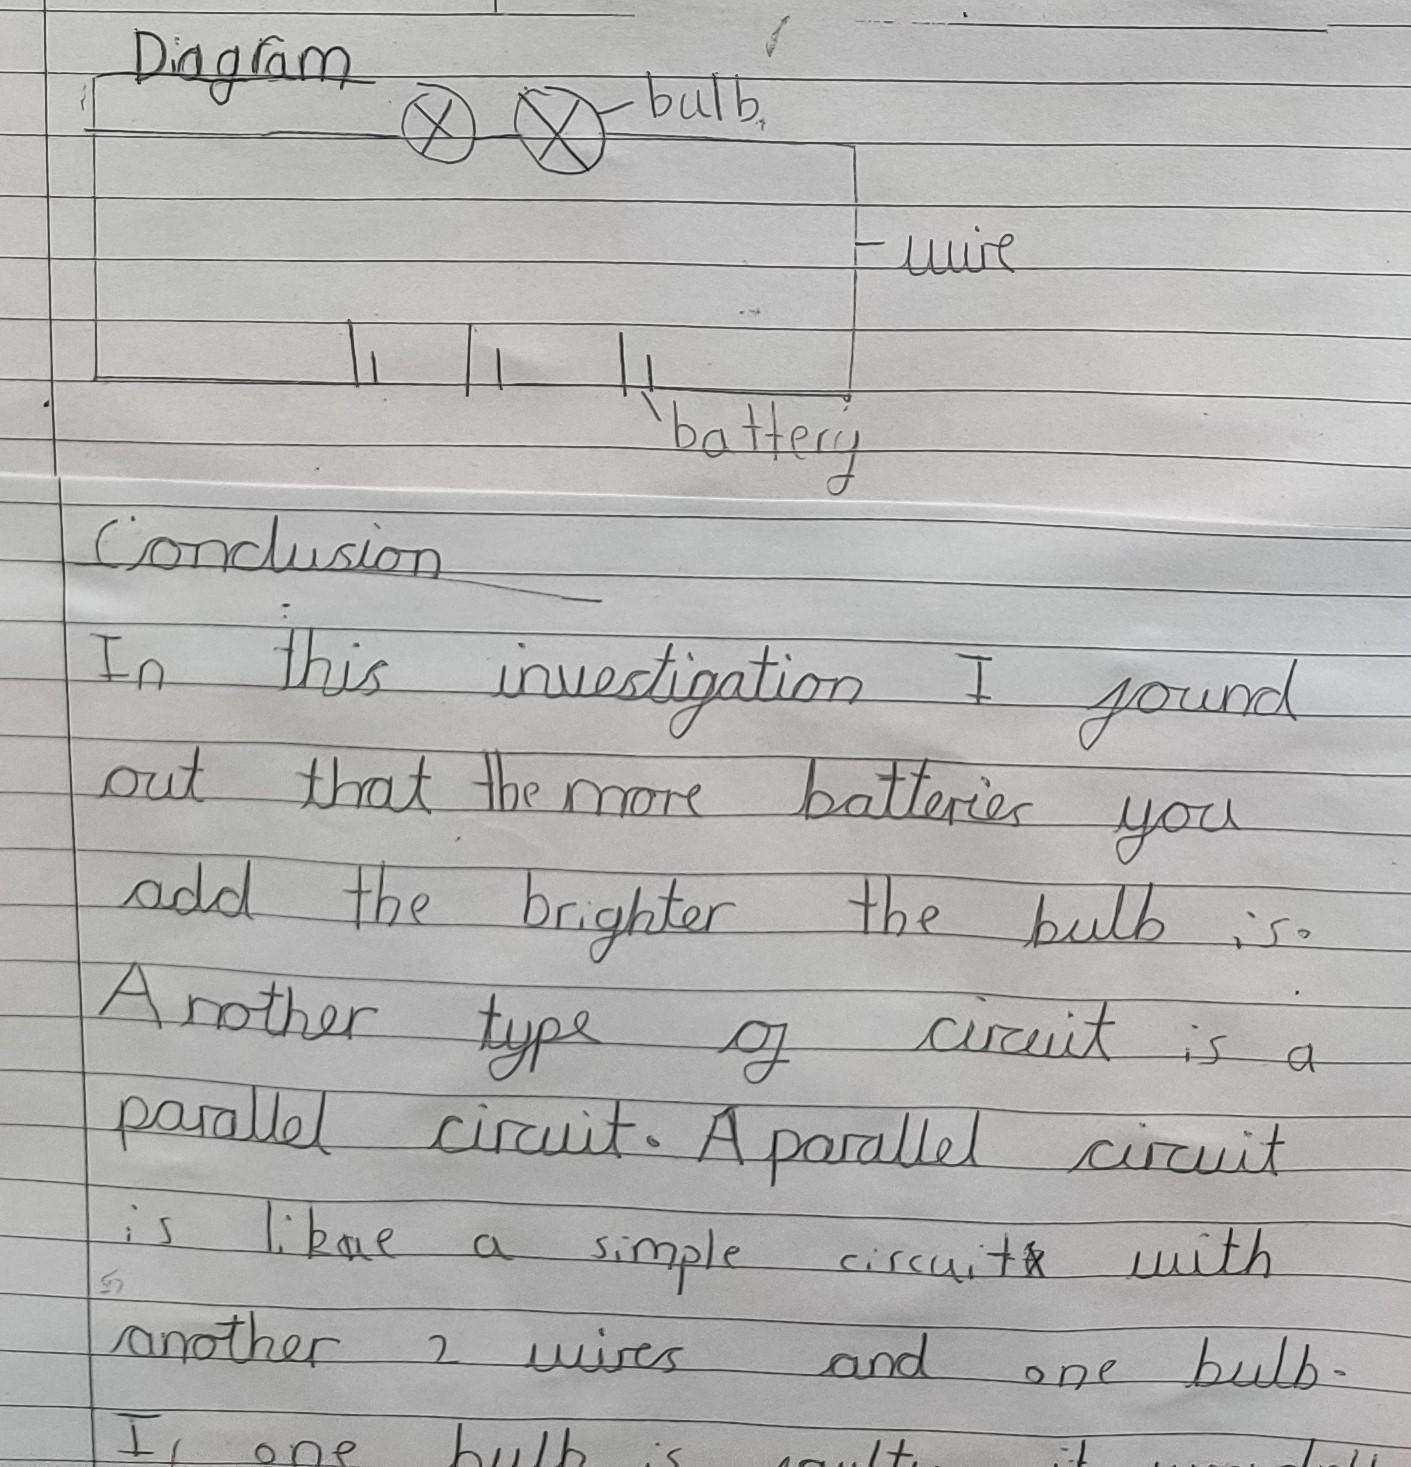 Diagram
bulb
wire
battery
Conclusion
In this investigation I found
out that the more batteries you
add the brighter the bulb is.
Another type of circuit is a
parallel circuit. A parallel circuit
is like a simple circuit with
another 2 wires and one bulb.
If one bulb is faulty it